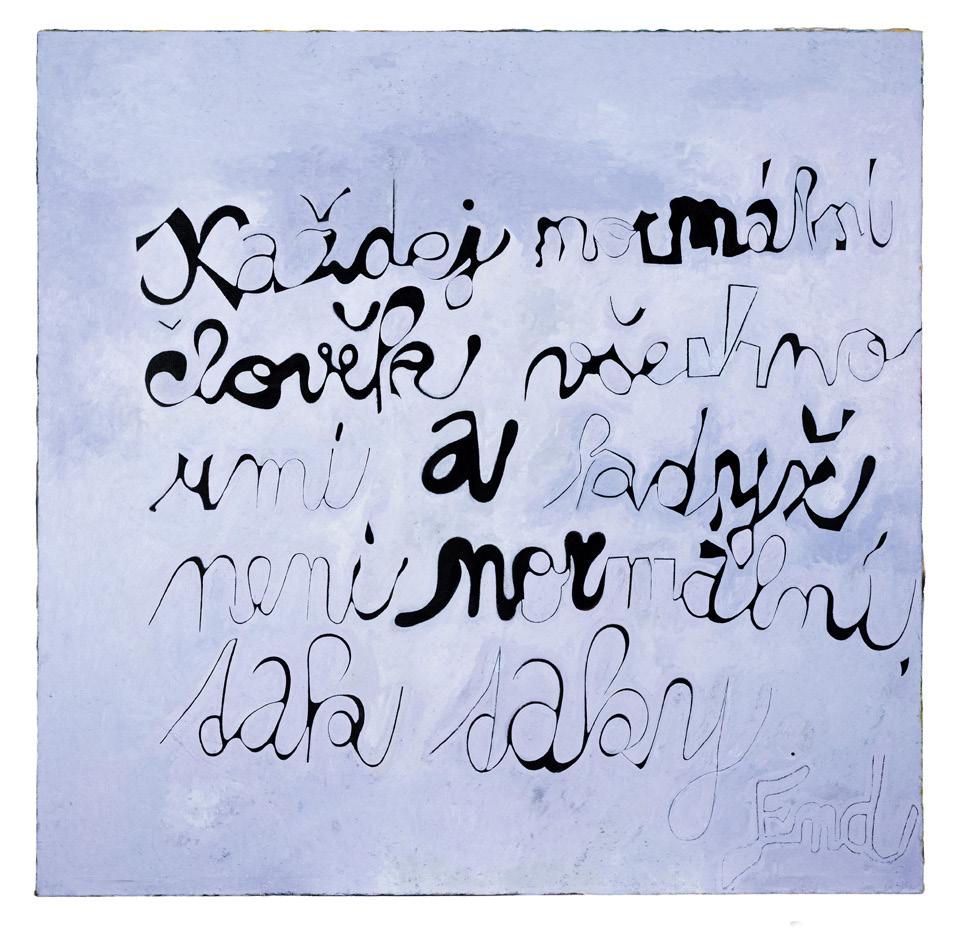 Každej normální
člověk všechno
umí a kdyẍ
není normální,
tak taky.
Emd